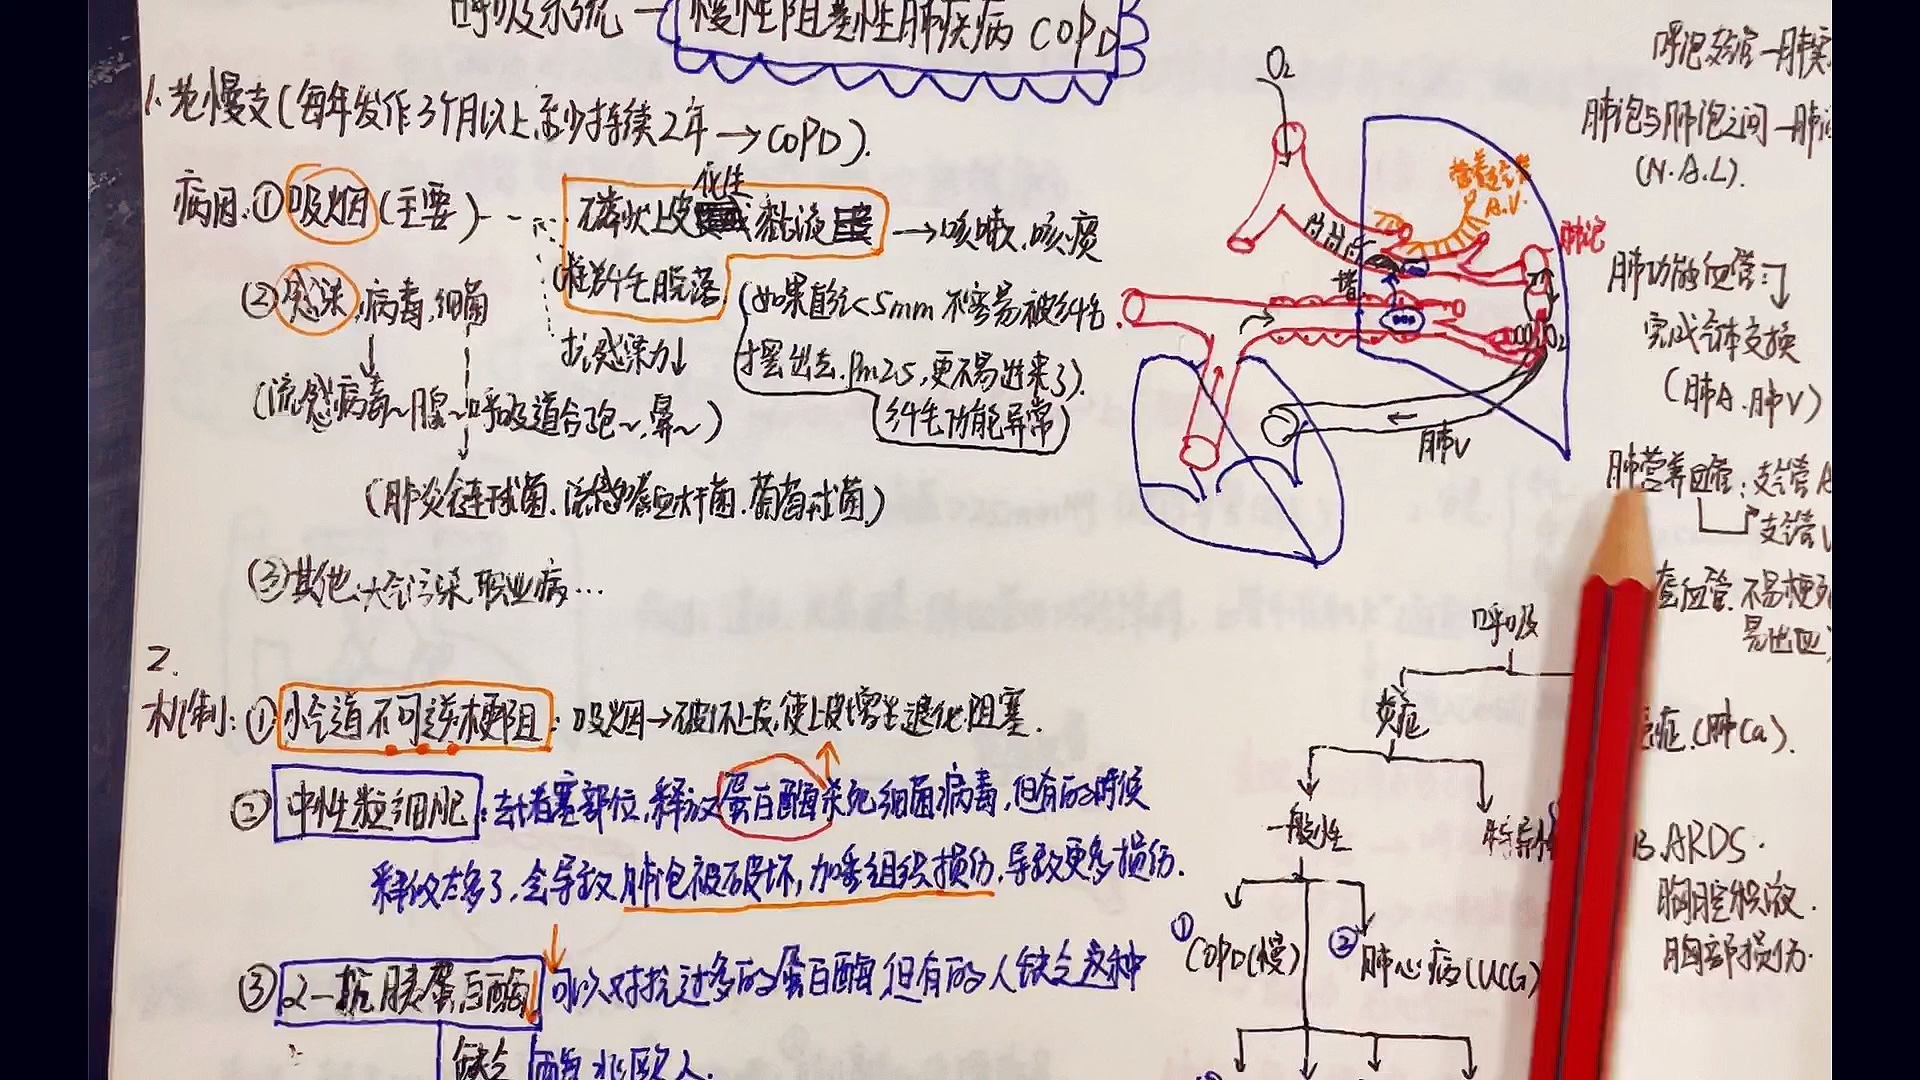 呼吸系统 — 慢性阻塞性肺疾病 COPD
1. 老慢支(每年发作3个月以上,至少持续2年 → COPD).
病因:①吸烟(主要)
鳞状上皮化生 黏液
(纤毛脱落
→ 咳嗽.咳痰
抗感染力↓
(如果直径<5mm 不容易被纤毛
摆出去.Pm2.5,更不易进来了).
(纤毛功能异常)
②感染:病毒.细菌
(流感病毒~腺~呼吸道合胞~,鼻~)
(肺炎链球菌.流感嗜血杆菌.葡萄球菌)
③其他:大气污染.职业病…
2.
机制:①小气道不可逆梗阻:吸烟→破坏上皮,使上皮增生退化,阻塞.
②中性粒细胞:去堵塞部位,释放蛋白酶杀死细菌病毒,但有的时候
释放太多了,会导致肺泡被破坏,加重组织损伤,导致更多损伤.
③α-抗胰蛋白酶↓ 可以对抗过多的蛋白酶,但有的人缺乏这种
缺乏
酶,北欧人.
O₂
营养血管
A.V.
肺泡
堵
CO₂ O₂
肺V
肺泡与肺泡之间—肺
(N.A.L).
肺功能血管:
完成气体交换
(肺A.肺V)
肺营养血管:支气管A
支气管V
血管.不易梗死
易出血
呼吸
炎症
症.(肺Ca).
一般性
特异性
①COPD(慢)
②肺心病(UCG)
ARDS.
胸腔积液.
胸部损伤.